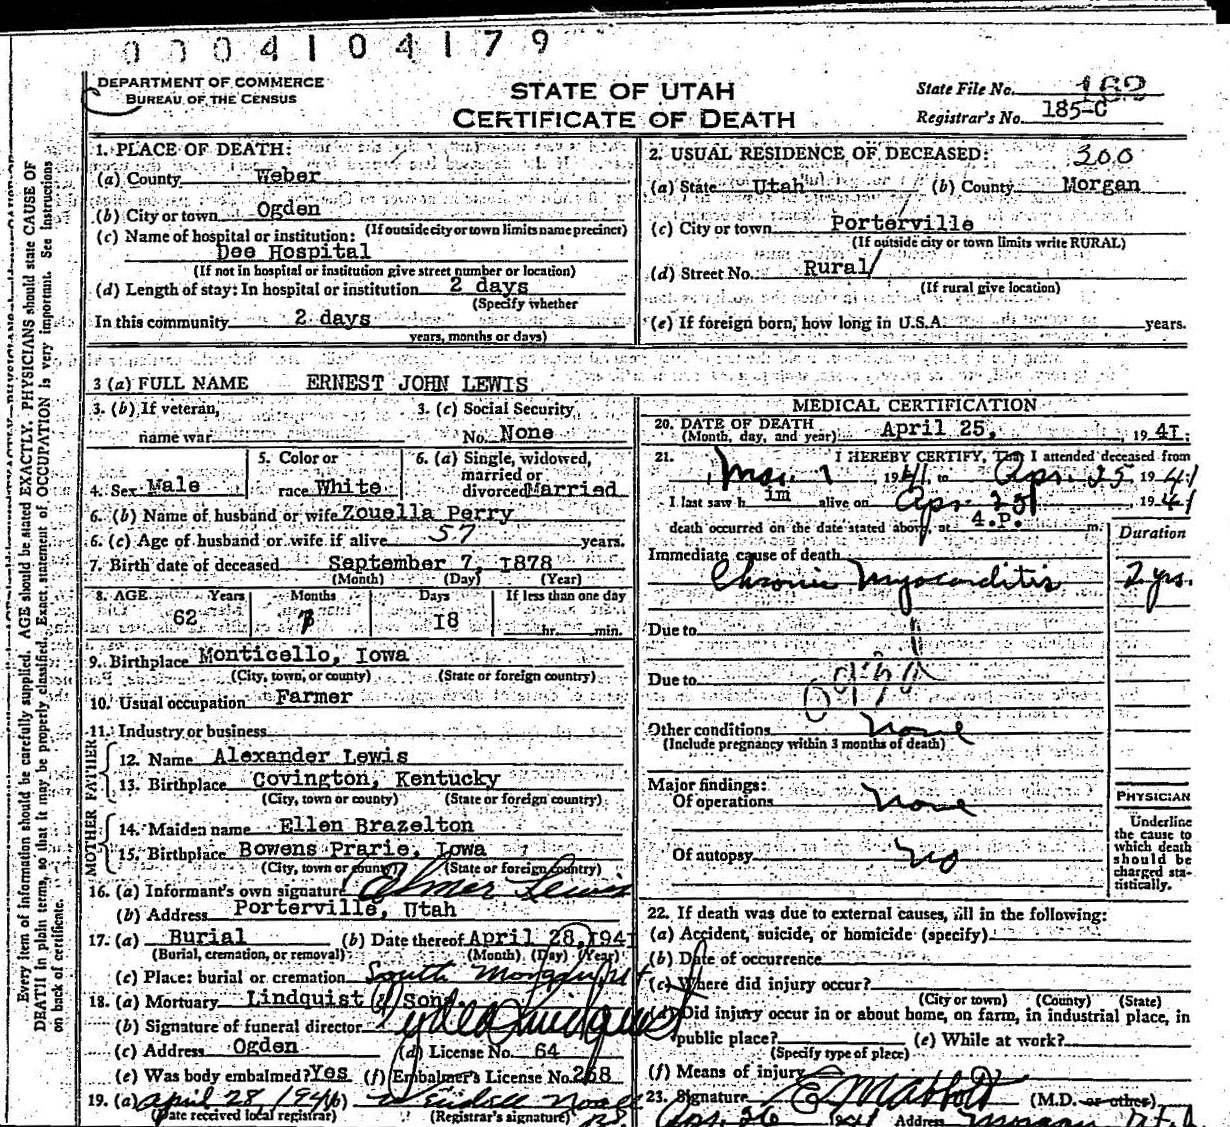 0004104179
DEPARTMENT OF COMMERCE
BUREAU OF THE CENSUS
STATE OF UTAH
CERTIFICATE OF DEATH
State File No. 162
Registrar's No. 185-C
1. PLACE OF DEATH:
(a) County Weber
(b) City or town Ogden
(If outside city or town limits name precinct)
(c) Name of hospital or institution:
Dee Hospital
(If not in hospital or institution give street number or location)
(d) Length of stay: In hospital or institution 2 days
(Specify whether
In this community 2 days
years, months or days)
2. USUAL RESIDENCE OF DECEASED: 300
(a) State Utah (b) County Morgan
(c) City or town Porterville
(If outside city or town limits write RURAL)
(d) Street No. Rural
(If rural give location)
(e) If foreign born, how long in U.S.A. years.
3 (a) FULL NAME ERNEST JOHN LEWIS
3. (b) If veteran,
name war
3. (c) Social Security
No. None
4. Sex Male
5. Color or
race White
6. (a) Single, widowed,
married or
divorced Married
6. (b) Name of husband or wife Zouella Perry
6. (c) Age of husband or wife if alive 57 years.
7. Birth date of deceased September 7, 1878
(Month) (Day) (Year)
8. AGE Years Months Days If less than one day
62 7 18 hr. min.
9. Birthplace Monticello, Iowa
(City, town, or county) (State or foreign country)
10. Usual occupation Farmer
11. Industry or business
FATHER
12. Name Alexander Lewis
13. Birthplace Covington, Kentucky
(City, town or county) (State or foreign country)
MOTHER
14. Maiden name Ellen Brazelton
15. Birthplace Bowens Prarie, Iowa
(City, town or county) (State or foreign country)
16. (a) Informant's own signature Elmer Lewis
(b) Address Porterville, Utah
17. (a) Burial (b) Date thereof April 28, 1941
(Burial, cremation, or removal) (Month) (Day) (Year)
(c) Place: burial or cremation South Morgan
18. (a) Mortuary Lindquist & Sons
(b) Signature of funeral director
(c) Address Ogden (d) License No. 64
(e) Was body embalmed? Yes (f) Embalmer's License No. 268
19. (a) April 28 1941 (b)
(Date received local registrar) (Registrar's signature)
MEDICAL CERTIFICATION
20. DATE OF DEATH
(Month, day, and year) April 25, 1941.
21. I HEREBY CERTIFY, That I attended deceased from
Mar. 1, 1941, to Apr. 25 1941
I last saw h im alive on Apr. 25, 1941
death occurred on the date stated above, at 4.P. m.
Duration
Immediate cause of death
Chronic Myocarditis 2 yrs.
Due to
Due to
Other conditions None
(Include pregnancy within 3 months of death)
Major findings:
Of operations None
Of autopsy no
PHYSICIAN
Underline
the cause to
which death
should be
charged sta-
tistically.
22. If death was due to external causes, fill in the following:
(a) Accident, suicide, or homicide (specify)
(b) Date of occurrence
(c) Where did injury occur?
(City or town) (County) (State)
(d) Did injury occur in or about home, on farm, in industrial place, in
public place? (e) While at work?
(Specify type of place)
(f) Means of injury
23. Signature E Mabbott (M.D. or other)
Apr. 26 1941 Address Morgan Utah
Every item of information should be carefully supplied. AGE should be stated EXACTLY. PHYSICIANS should state CAUSE OF
DEATH in plain terms, so that it may be properly classified. Exact statement of OCCUPATION is very important. See instructions
on back of certificate.